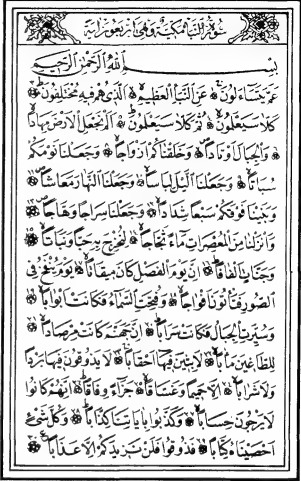 سورة النبأ مكية وهي اربعون اية
بسم الله الرحمن الرحيم
عم يتساءلون عن النبأ العظيم الذى هم فيه مختلفون
كلا سيعلمون ثم كلا سيعلمون الم نجعل الارض مهادا
والجبال اوتادا وخلقناكم ازواجا وجعلنا نومكم
سباتا وجعلنا الليل لباسا وجعلنا النهار معاشا
وبنينا فوقكم سبعا شدادا وجعلنا سراجا وهاجا
وانزلنا من المعصرات ماء ثجاجا لنخرج به حبا ونباتا
وجنات الفافا ان يوم الفصل كان ميقاتا يوم ينفخ فى
الصور فتأتون افواجا وفتحت السماء فكانت ابوابا
وسيرت الجبال فكانت سرابا ان جهنم كانت مرصادا
للطاغين مابا لابثين فيها احقابا لا يذوقون فيها بردا
ولا شرابا الا حميما وغساقا جزاء وفاقا انهم كانوا
لا يرجون حسابا وكذبوا باياتنا كذابا وكل شىء
احصيناه كتابا فذوقوا فلن نزيدكم الا عذابا